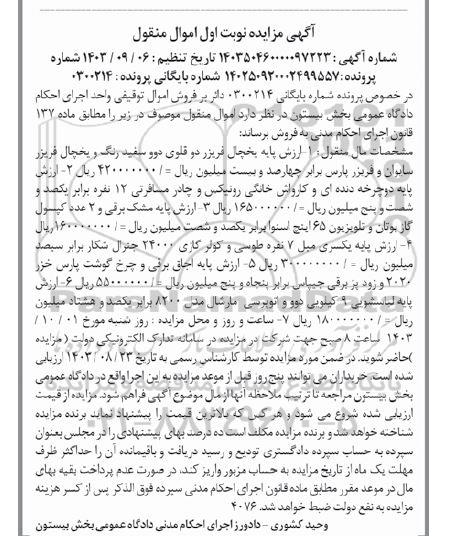 آگهی مزایده نوبت اول اموال منقول
شماره آگهی : ۱۴۰۳۵۰۴۶۰۰۰۰۰۹۷۲۲۳ تاریخ تنظیم : ۰۶ / ۰۹ / ۱۴۰۳ شماره
پرونده : ۱۴۰۲۵۰۹۲۰۰۰۲۴۹۹۵۵۷ شماره بایگانی پرونده : ۰۳۰۰۲۱۴
در خصوص پرونده شماره بایگانی ۰۳۰۰۲۱۴ دائر بر فروش اموال توقیفی واحد اجرای احکام
دادگاه عمومی بخش بیستون در نظر دارد اموال منقول موصوف در زیر را مطابق ماده ۱۳۷
قانون اجرای احکام مدنی به فروش برساند:
مشخصات مال منقول : ۱- ارزش پایه یخچال فریزر دو قلوی دوو سفید رنگ و یخچال فریزر
سابوان و فریزر پارس برابر چهارصد و بیست میلیون ریال =/ ۴۲۰۰۰۰۰۰۰ ریال ۲- ارزش
پایه دوچرخه دنده ای و کارواش خانگی رونیکس و چادر مسافرتی ۱۲ نفره برابر یکصد و
شصت و پنج میلیون ریال =/ ۱۶۵۰۰۰۰۰۰ ریال ۳- ارزش پایه مشک برقی و ۲ عدد کپسول
گاز بوتان و تلویزیون ۶۵ اینچ اسنوا برابر یکصد و شصت میلیون ریال =/ ۱۶۰۰۰۰۰۰۰ ریال
۴- ارزش پایه یکسری مبل ۷ نفره طوسی و کولر گازی ۲۴۰۰۰ جنرال شکار برابر سیصد
میلیون ریال =/ ۳۰۰۰۰۰۰۰۰ ریال ۵- ارزش پایه اجاق برقی و چرخ گوشت پارس خزر
۲۰۲۰ و زود پز برقی جیپاس برابر پنجاه و پنج میلیون ریال =/ ۵۵۰۰۰۰۰۰ ریال ۶- ارزش
پایه لباسشویی ۹ کیلویی دوو و توپرسی مارشال مدل ۸۲۰۰ برابر یکصد و هشتاد میلیون
ریال =/ ۱۸۰۰۰۰۰۰۰ ریال ۷- ساعت و روز و محل مزایده : روز شنبه مورخ ۰۱ / ۱۰ /
۱۴۰۳ ساعت ۸ صبح جهت شرکت در مزایده در سامانه تدارک الکترونیکی دولت ( مزایده
)حاضر شوند. در ضمن مورد مزایده توسط کارشناس رسمی به تاریخ ۲۳ / ۰۸ / ۱۴۰۳ ارزیابی
شده است خریداران می توانند پنج روز قبل از موعد مزایده به این اجرا واقع در دادگاه عمومی
بخش بیستون مراجعه تا ترتیب ملاحظه آنها از مال موضوع آگهی فراهم شود. مزایده از قیمت
ارزیابی شده شروع می شود و هر کس که بالاترین قیمت را پیشنهاد نماید برنده مزایده
شناخته خواهد شد و برنده مزایده مکلف است ده درصد بهای پیشنهادی را در مجلس بعنوان
سپرده به حساب سپرده دادگستری تودیع و رسید دریافت و باقیمانده آن را حداکثر ظرف
مهلت یک ماه از تاریخ مزایده به حساب مزبور واریز کند، در صورت عدم پرداخت بقیه بهای
مال در موعد مقرر مطابق ماده قانون اجرای احکام مدنی سپرده فوق الذکر پس از کسر هزینه
مزایده به نفع دولت ضبط خواهد شد. ۴۰۷۶
وحید کشوری - دادورز اجرای احکام مدنی دادگاه عمومی بخش بیستون